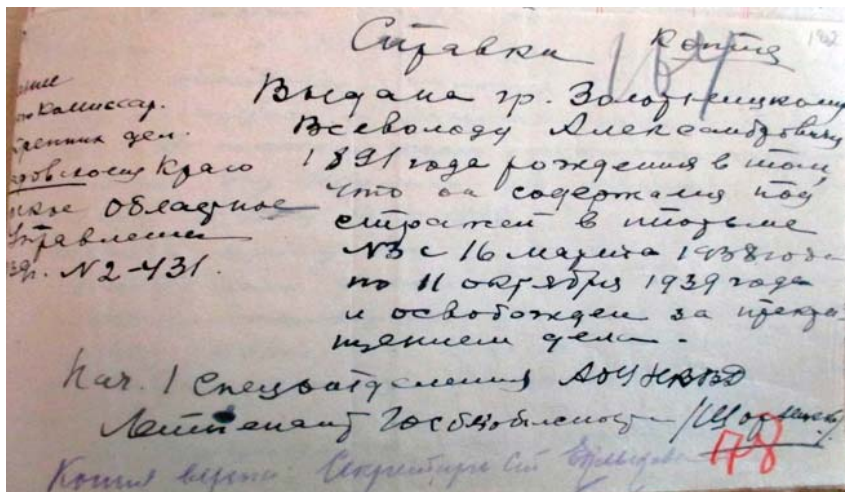 Справка Копия
162
Комиссар.
дел.
Краю
Областное
Управление
N 2-431.
Выдана гр. Золотницкому
Всеволоду Александровичу
1891 года рождения в том,
что он содержался под
стражей в тюрьме
N3 с 16 марта 1938 года
по 11 октября 1939 года
и освобожден за прекра-
щением дела.
Нач. 1 Спецотделения АОУНКВД
Лейтенант Госбезопасности
78
Копия верна: Секретарь